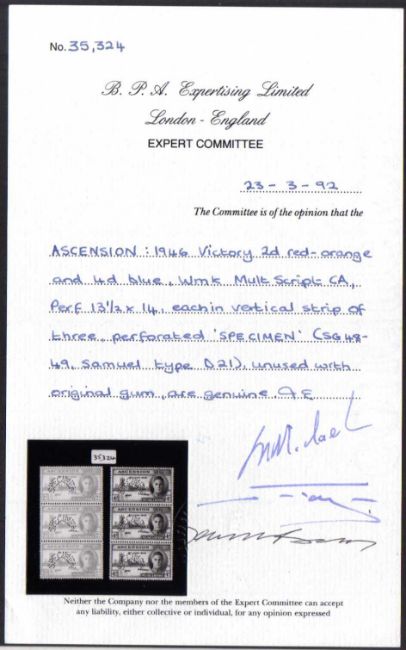 No. 35,324
B. P. A. Expertising Limited
London - England
EXPERT COMMITTEE
23-3-92
The Committee is of the opinion that the
ASCENSION : 1946 Victory 2d red-orange
and 4d blue, Wmk Mult Script CA,
Perf 13½ x 14, each in vertical strip of
three, perforated 'SPECIMEN' (SG 48-
49, Samuel type D21), unused with
original gum, are genuine.
35,324
ASCENSION ASCENSION
SPECIMEN
Neither the Company nor the members of the Expert Committee can accept
any liability, either collective or individual, for any opinion expressed